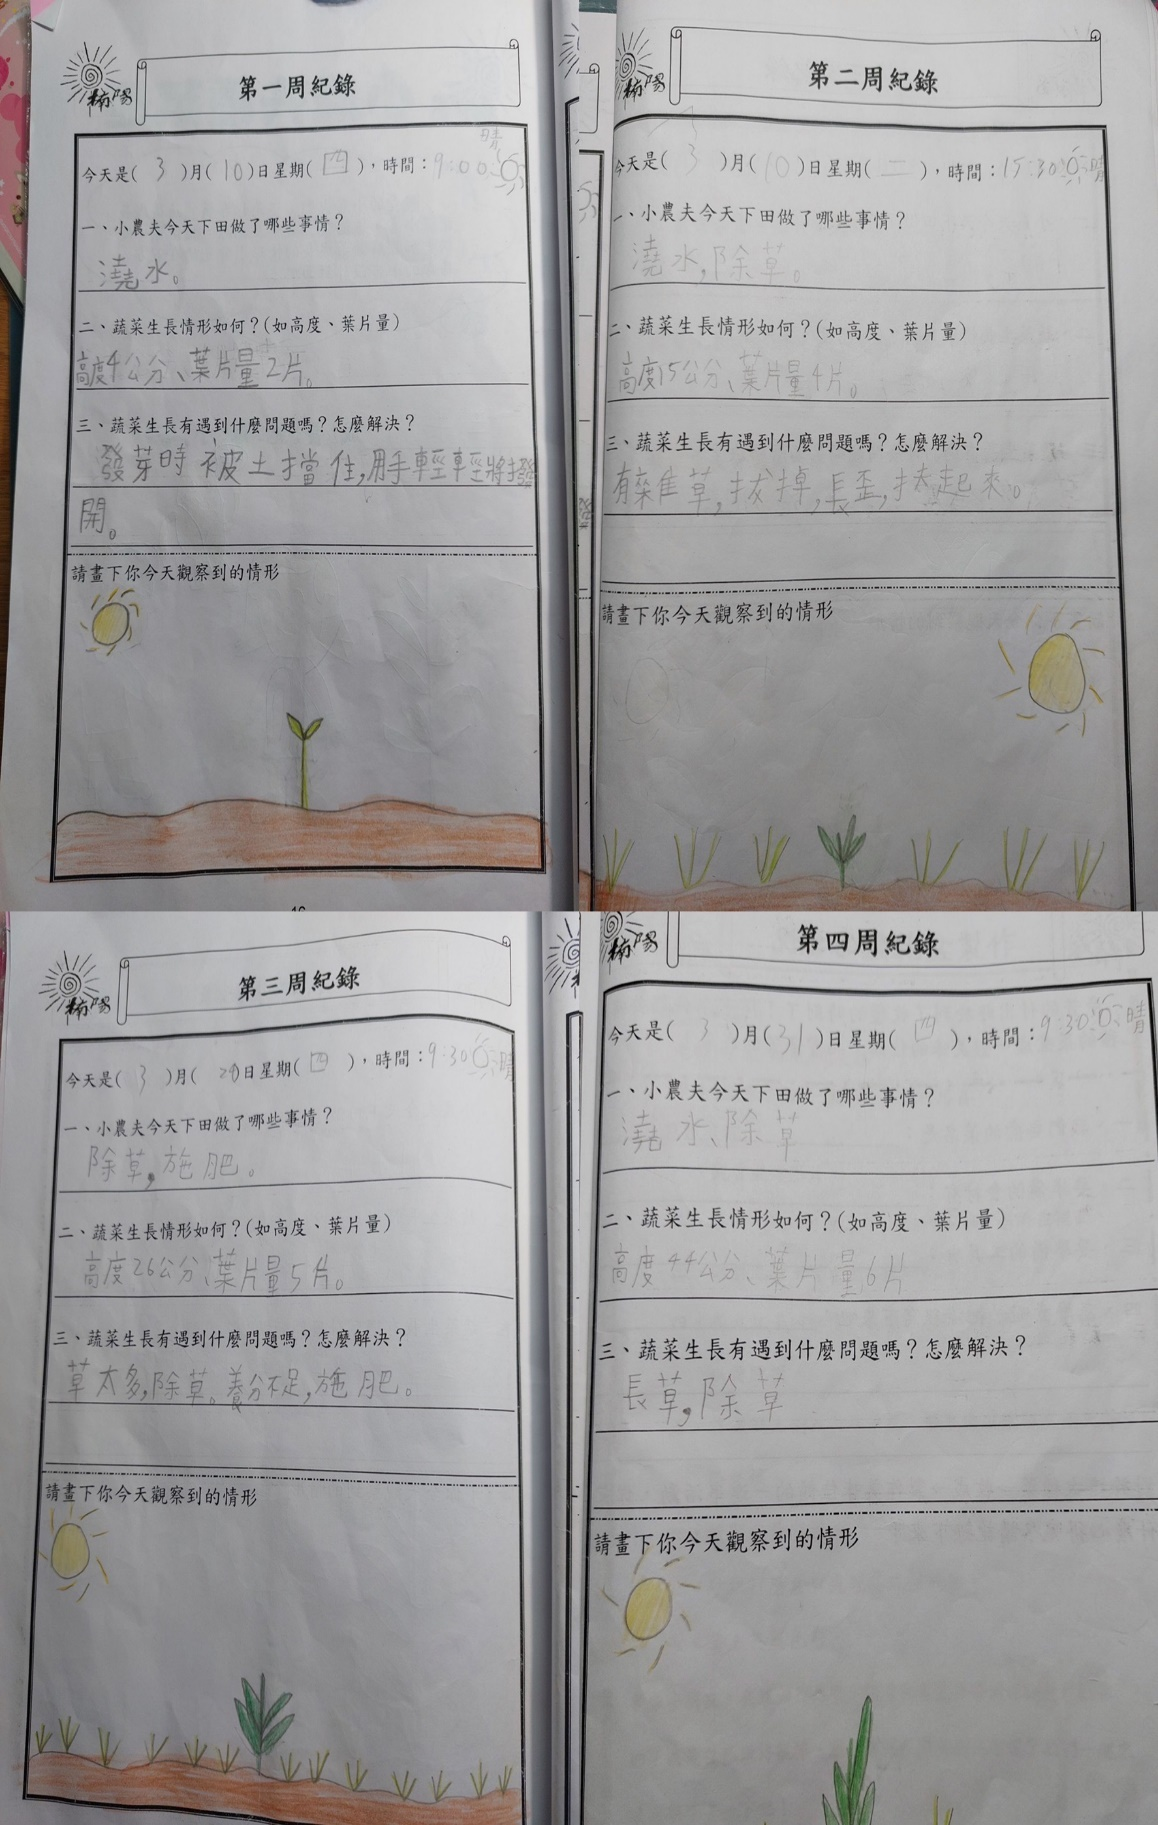 柿陽
第一周紀錄
晴
今天是( 3 )月(10)日星期(四),時間:9:00
一、小農夫今天下田做了哪些事情?
澆水。
二、蔬菜生長情形如何?(如高度、葉片量)
高度4公分、葉片量2片。
三、蔬菜生長有遇到什麼問題嗎?怎麼解決?
發芽時被土擋住,用手輕輕將撥
開。
請畫下你今天觀察到的情形
柿陽
第二周紀錄
今天是( 3 )月(10)日星期( 二 ),時間:15:30晴
一、小農夫今天下田做了哪些事情?
澆水,除草。
二、蔬菜生長情形如何?(如高度、葉片量)
高度15公分、葉片量4片。
三、蔬菜生長有遇到什麼問題嗎?怎麼解決?
有雜草,拔掉,長歪,扶起來。
請畫下你今天觀察到的情形
柿陽
第三周紀錄
今天是( 3 )月( )日星期(四 ),時間:9:30晴
一、小農夫今天下田做了哪些事情?
除草,施肥。
二、蔬菜生長情形如何?(如高度、葉片量)
高度26公分、葉片量5片。
三、蔬菜生長有遇到什麼問題嗎?怎麼解決?
草太多,除草。養分不足,施肥。
請畫下你今天觀察到的情形
柿陽
第四周紀錄
今天是( 3 )月(31)日星期( 四 ),時間:9:30晴
一、小農夫今天下田做了哪些事情?
澆水、除草
二、蔬菜生長情形如何?(如高度、葉片量)
高度44公分、葉片量6片
三、蔬菜生長有遇到什麼問題嗎?怎麼解決?
長草,除草
請畫下你今天觀察到的情形